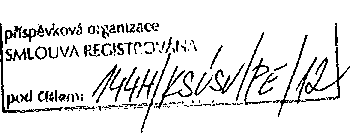 příspěvková organizace
SMLOUVA REGISTROVÁNA
pod číslem: 144H/KSÚSV/PE/12